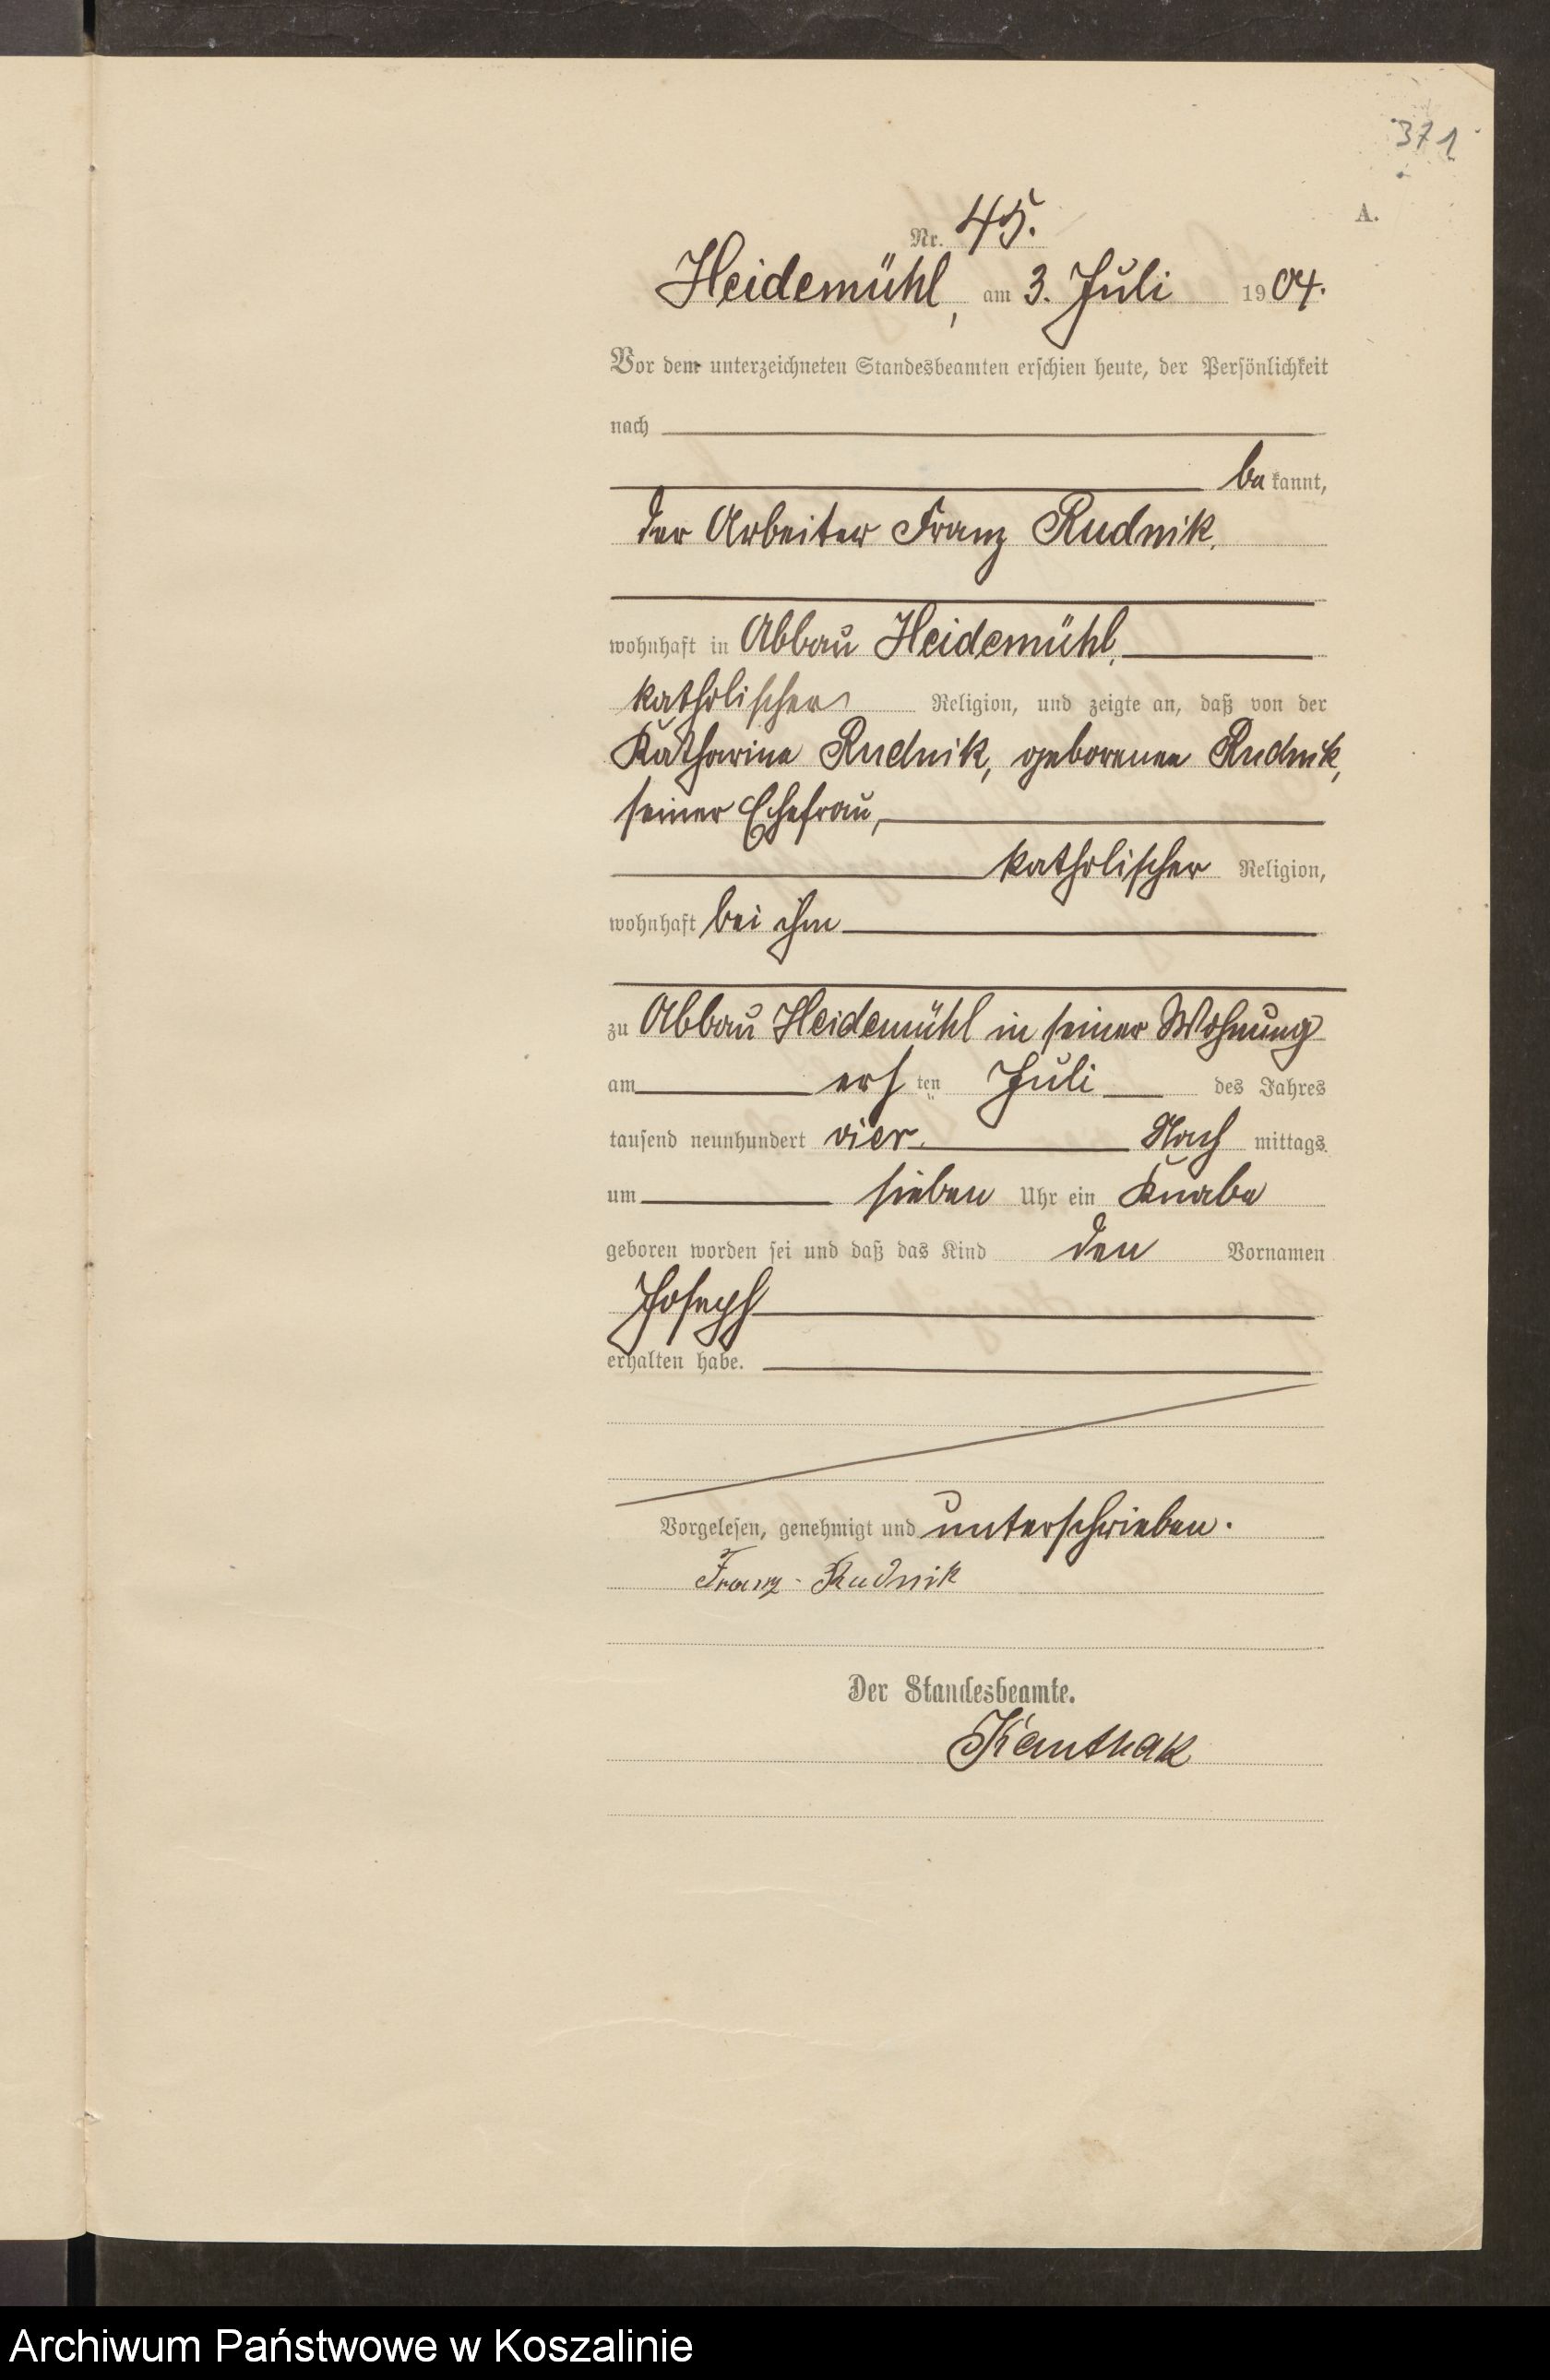 371
A.
Nr. 45.
Heidemühl, am 3. Juli 1904.
Vor dem unterzeichneten Standesbeamten erschien heute, der Persönlichkeit
nach
bekannt,
der Arbeiter Franz Rudnik,
wohnhaft in Abbau Heidemühl,
katholischer Religion, und zeigte an, daß von der
Katharina Rudnik, geborenen Rudnik,
seiner Ehefrau,
katholischer Religion,
wohnhaft bei ihm
zu Abbau Heidemühl in seiner Wohnung
am ersten Juli des Jahres
tausend neunhundert vier. Nachmittags
um sieben Uhr ein Knabe
geboren worden sei und daß das Kind den Vornamen
Joseph
erhalten habe.
Vorgelesen, genehmigt und unterschrieben.
Franz Rudnik
Der Standesbeamte.
Kanthak
Archiwum Państwowe w Koszalinie